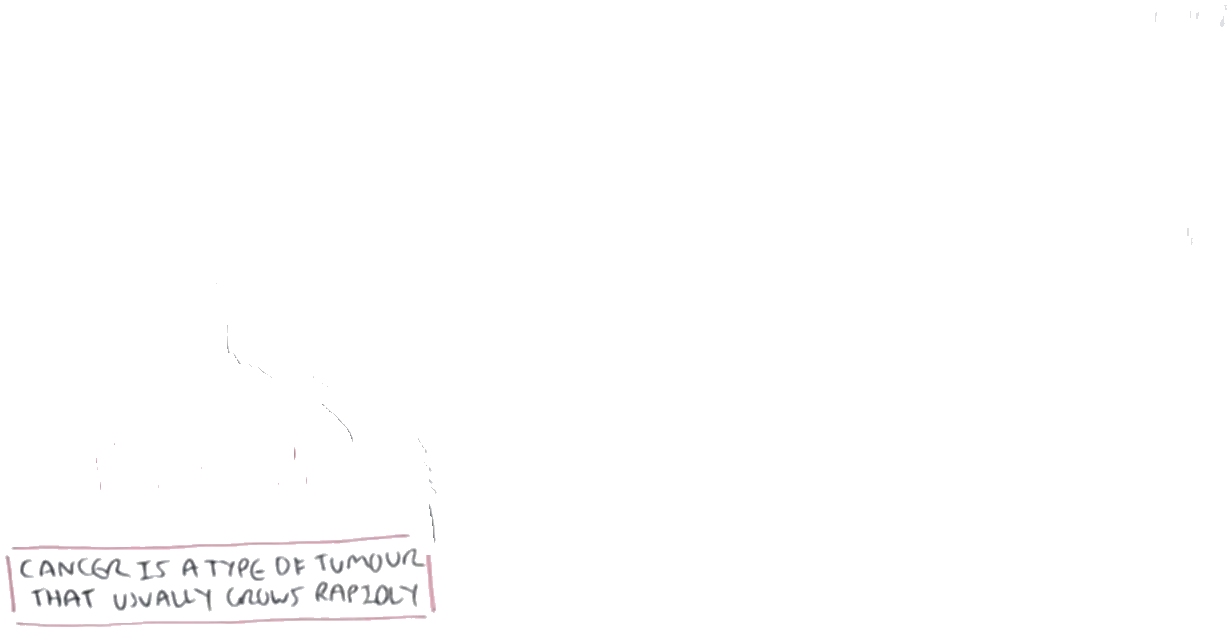 CANCER IS A TYPE OF TUMOUR
THAT USUALLY GROWS RAPIDLY